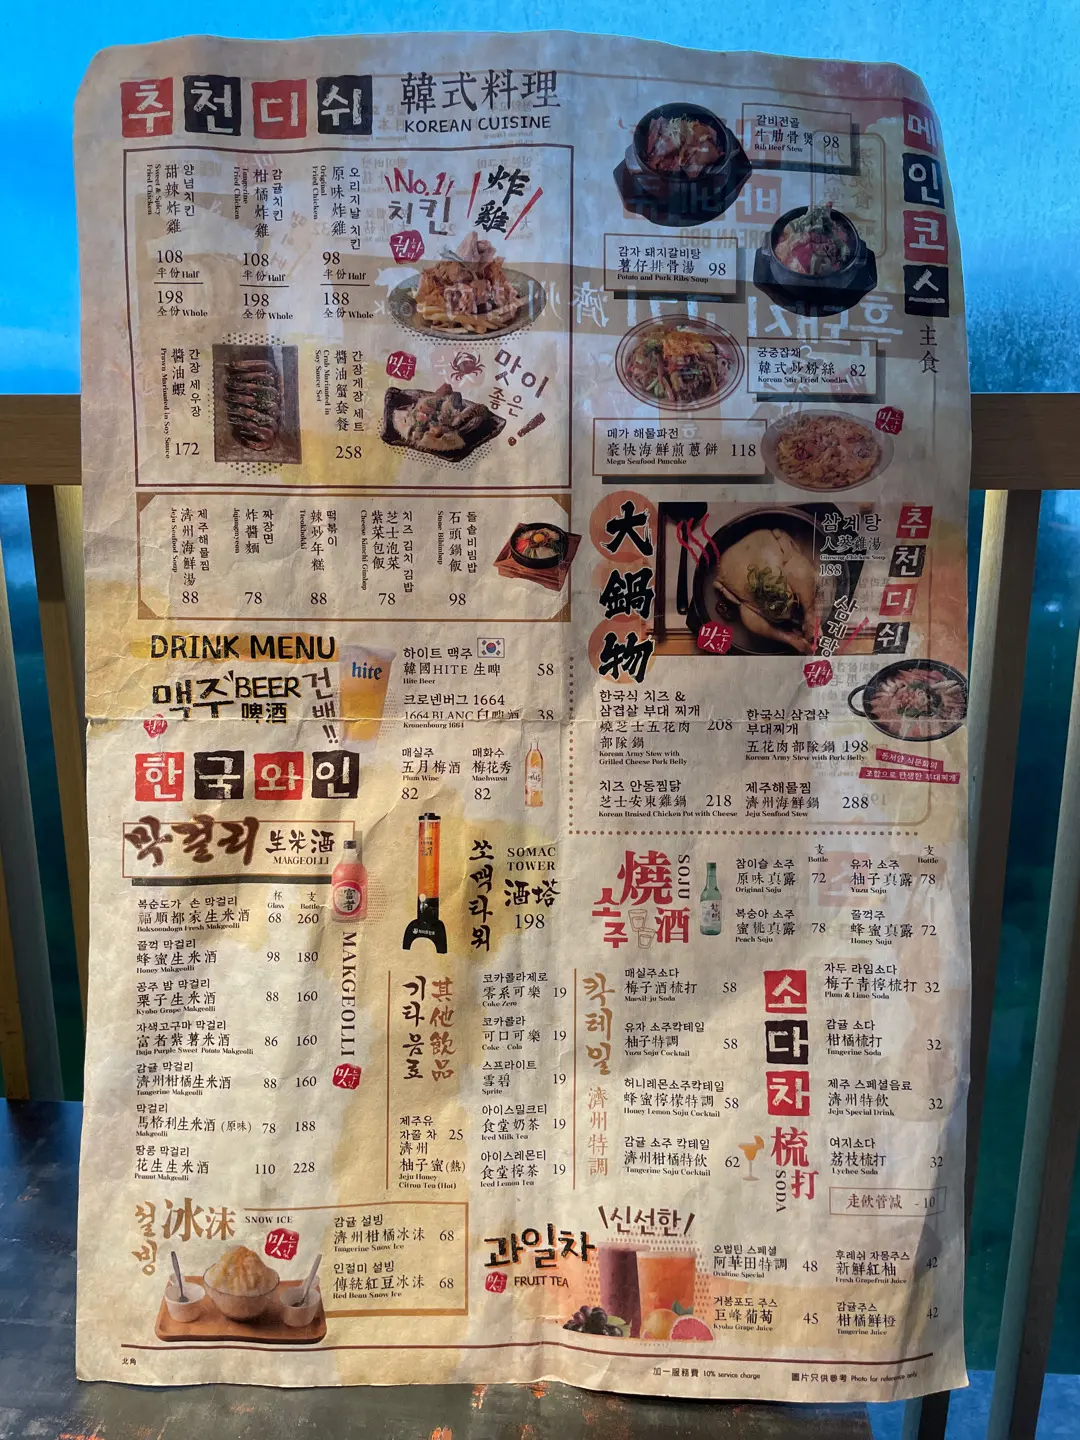 추천디쉬
韓式料理
KOREAN CUISINE
양념치킨
甜辣炸雞
Sweet & Spicy
Fried Chicken
108
半份 Half
198
全份 Whole
감귤치킨
柑橘炸雞
Tangerine
Fried Chicken
108
半份 Half
198
全份 Whole
오리지날 치킨
原味炸雞
Original
Fried Chicken
98
半份 Half
188
全份 Whole
No.1
치킨
炸雞
간장 새우장
醬油蝦
Prawn Marinated in Soy Sauce
172
간장게장 세트
醬油蟹套餐
Crab Marinated in
Soy Saurce Set
258
맛이
좋은
제주해물찜
濟州海鮮湯
Jeju Seafood Soup
88
짜장면
炸醬麵
Jajangmyeon
78
떡볶이
辣炒年糕
Tteokbokki
88
치즈 김치 김밥
芝士泡菜
紫菜包飯
Cheese Kimchi Gimbap
78
돌솥비빔밥
石頭鍋飯
Stone Bibimbap
98
메인코스
主食
갈비전골
牛肋骨煲 98
Rib Beef Stew
감자 돼지갈비탕
薯仔排骨湯 98
Potato and Pork Ribs Soup
궁중잡채
韓式炒粉絲 82
Korean Stir Fried Noodles
메가 해물파전
豪快海鮮煎蔥餅 118
Mega Seafood Pancake
大鍋物
삼계탕
人蔘雞湯
Ginseng Chicken Soup
188
삼계탕
추천디쉬
한국식 치즈 &
삼겹살 부대 찌개
燒芝士五花肉 208
部隊鍋
Korean Army Stew with
Grilled Cheese Pork Belly
한국식 삼겹살
부대찌개
五花肉部隊鍋 198
Korean Army Stew with Pork Belly
동서양 식문화의
조합으로 탄생한 부대찌개
치즈 안동찜닭
芝士安東雞鍋 218
Korean Braised Chicken Pot with Cheese
제주해물찜
濟州海鮮鍋 288
Jeju Seafood Stew
DRINK MENU
맥주 BEER
啤酒
건배!!
hite
하이트 맥주
韓國HITE 生啤 58
Hite Beer
크로넨버그 1664
1664 BLANC白啤酒 38
Kronenbourg 1664
한국와인
매실주
五月梅酒
Plum Wine
82
매화수
梅花秀
Maehwasu
82
막걸리 生米酒
MAKGEOLLI
杯 Glass
支 Bottle
복순도가 손 막걸리
福順都家生米酒 68 260
Boksoondoga Fresh Makgeolli
꿀꺽 막걸리
蜂蜜生米酒 98 180
Honey Makgeolli
공주 밤 막걸리
栗子生米酒 88 160
Kyoho Grape Makgeolli
자색고구마 막걸리
富者紫薯米酒 86 160
Buja Purple Sweet Potato Makgeolli
감귤 막걸리
濟州柑橘生米酒 88 160
Tangerine Makgeolli
막걸리
馬格利生米酒 (原味) 78 188
Makgeolli
땅콩 막걸리
花生生米酒 110 228
Peanut Makgeolli
MAKGEOLLI
쏘맥타워
SOMAC
TOWER
酒塔
198
燒酒
소주
SOJU
支 Bottle
支 Bottle
참이슬 소주
原味真露 72
Original Soju
유자 소주
柚子真露 78
Yuzu Soju
복숭아 소주
蜜桃真露 78
Peach Soju
꿀꺽주
蜂蜜真露 72
Honey Soju
기타음료
其他飲品
코카콜라제로
零系可樂 19
Coke Zero
코카콜라
可口可樂 19
Coke Cola
스프라이트
雪碧 19
Sprite
아이스밀크티
食堂奶茶 19
Iced Milk Tea
아이스레몬티
食堂檸茶 19
Iced Lemon Tea
제주유
자꿀 차 25
濟州
柚子蜜(熱)
Jeju Honey
Citron Tea (Hot)
칵테일
濟州特調
매실주소다
梅子酒梳打 58
Maesil-ju Soda
유자 소주칵테일
柚子特調 58
Yuzu Soju Cocktail
허니레몬소주칵테일
蜂蜜檸檬特調 58
Honey Lemon Soju Cocktail
감귤 소주 칵테일
濟州柑橘特飲 62
Tangerine Soju Cocktail
소다차
梳打
SODA
자두 라임소다
梅子青檸梳打 32
Plum & Lime Soda
감귤 소다
柑橘梳打 32
Tangerine Soda
제주 스페셜음료
濟州特飲 32
Jeju Special Drink
여지소다
荔枝梳打 32
Lychee Soda
走飲管減 - 10
설빙
冰沫
SNOW ICE
감귤 설빙
濟州柑橘冰沫 68
Tangerine Snow Ice
인절미 설빙
傳統紅豆冰沫 68
Red Bean Snow Ice
과일차
신선한
FRUIT TEA
오벌틴 스페셜
阿華田特調 48
Ovaltine Special
후레쉬 자몽주스
新鮮紅柚 42
Fresh Grapefruit Juice
거봉포도 주스
巨峰葡萄 45
Kyoho Grape Juice
감귤주스
柑橘鮮橙 42
Tangerine Juice
北角
加一服務費 10% service charge
圖片只供參考 Photo for reference only